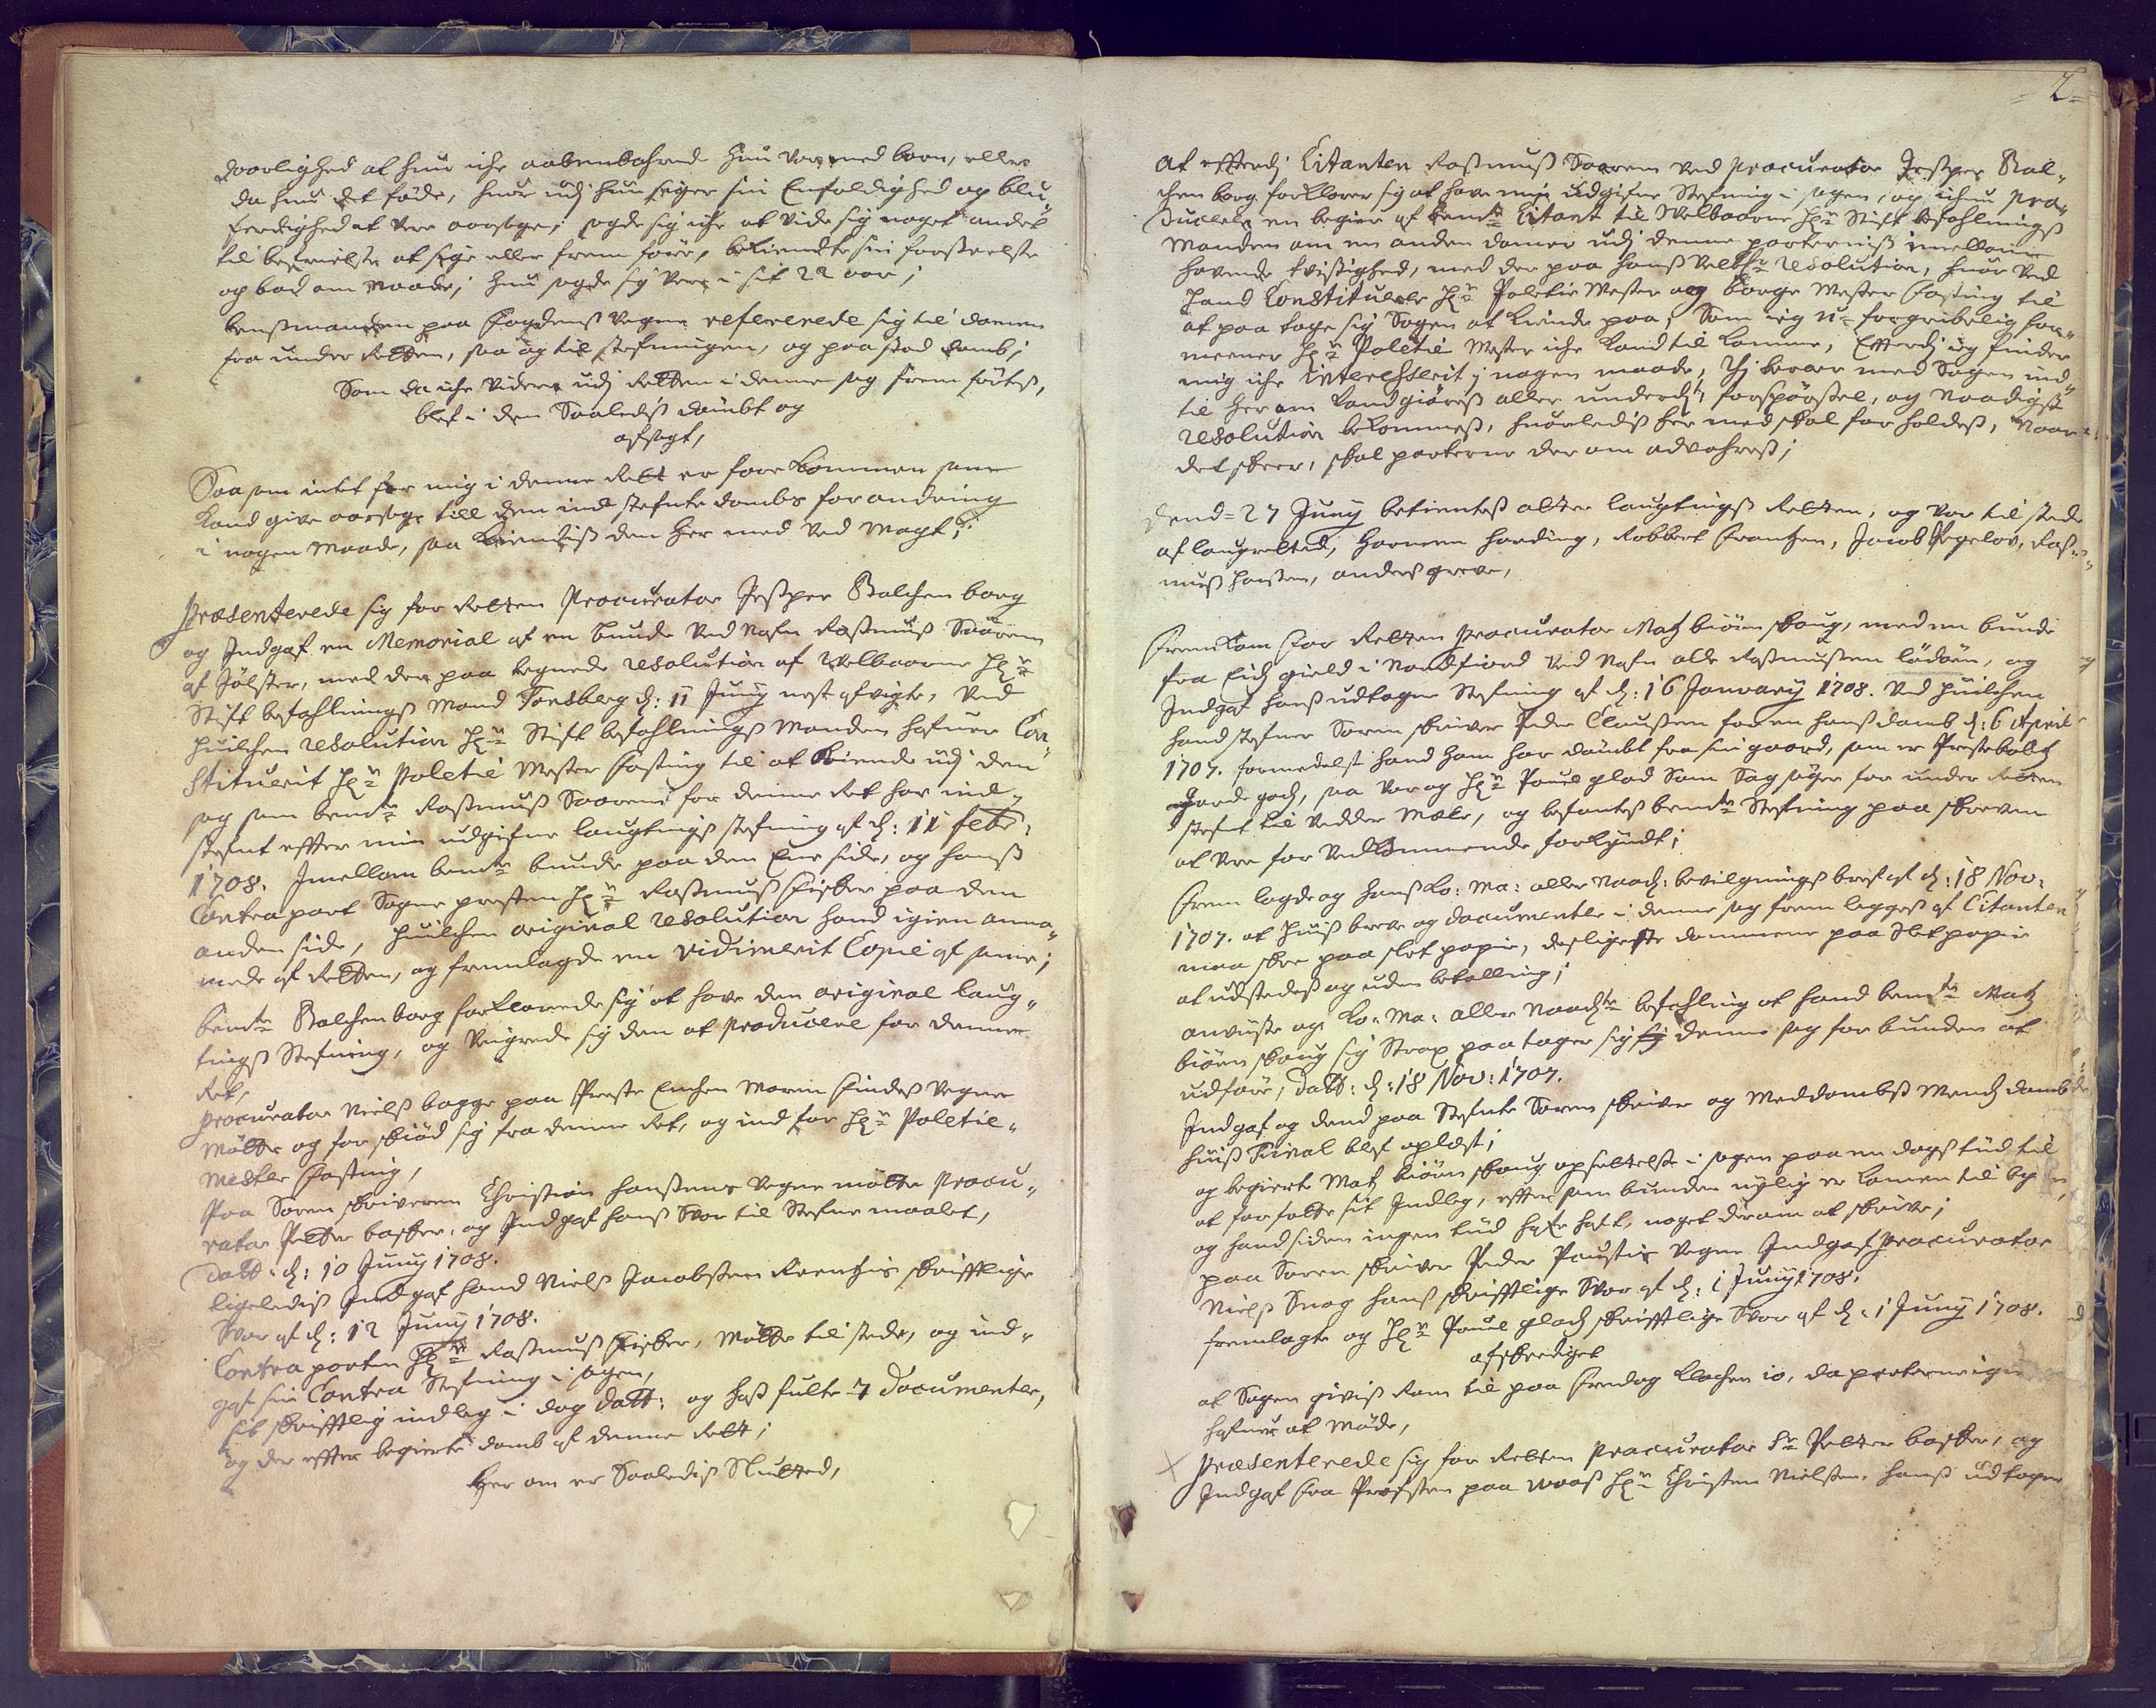 daarlighed at hun iche aabenbahrede hun var med barn, eller
da hun det føde, hvor udj hun siger sin Enfoldighed og blu„
ferdighed at vere aarsage, sagde sig iche at vide sig noget andet
til befrielse at sige eller frem føre, bekiendte sin forseelse
og bad om Naade; hun sagde sig vere i sit 22 aar;
Lensmanden paa Fogdens Vegne refererede sig til domen
fra under Retten, saa og til stefningen, og paastod domb;
Som da iche videre udj Retten i denne sag frem førtes,
blef i den Saaledis dømbt og
afsagt,
Saasom intet for mig i denne Rett er fore kommen som
kand give aarsage till den ind stefnte dombs forandring
i nogen Maade, saa kiendis den her med ved Magt;
Præsenterede sig for Retten Procurator Jesper Balchenborg
og Indgaf en Memorial af en bunde ved Nafn Rasmus Saaren
af Jølster, med der paa tegnede resolution af Welbaarne Hr
Stift befahlnings Mand Tonsberg d: 11 Junÿ nest afvigte, Ved
huilchen resolution Hr Stift befahlnings Manden hafuer Con„
stituerit Hr Politie Mester Fasting til at kiende udj den
sag som bemte Rasmus Saaren for denne Ret har ind„
stefnt effter min udgifne laugtings stefning af d: 11 febr:
1708. Imellem bemte bunde paa den Ene side, og hans
Contrapart Sogne presten Hr Rasmus Fisker paa den
anden side, huilchen original resolution hand igien anna„
mede af Retten, og fremlagde en vidimerit Copie af same;
bemte Balchenborg forklarede sig at have den original laug„
tings Stefning, og Veigrede sig den at producere for denne
Ret,
Procurator Niels bagge paa Preste Enchen Maren Findes Vegne
Møtte og for skiød sig fra denne Ret, og ind for Hr Politie„
Mester Fasting,
Paa Soren skriveren Christian Hansens Vegne møtte Procu„
rator Petter basker, og Indgaf hans Svar til Stefnemaalet,
Datt: d: 10 Junÿ 1708.
ligeledis Indgaf hand Niels Jacobsen skrifftlige
Svar af d: 12 Junÿ 1708.
Contraparten Hr Rasmus Fisker, Møtte til stede, og ind„
gaf sin Contra Stefning i sagen,
sit skrifftlig indleg i dag datt: og hos fulte 7 Documenter,
og der effter begierte domb af denne Rett;
Her om er Saaledis Slutted,
2
At efftersom Citanten Rasmus Saaren ved procurator Jesper Bal„
chenborg forklarer sig at have min udgifne Stefning i sagen, og ichun pro„
ducerer en begier af bemte Citant til Welbaarne Hr Stift befahlnings
Manden om en anden domer udj denne parternis imellem
havende tvistighed, med der paa hans Velbhr resolution, huor ved
hand Constituerer Hr Politie Mester og borge Mester Fasting til
at paa tage sig Sagen at kiende paa; Som jeg u-forgribelig for„
meener Hr Politie Mester iche kand til komme, Effterdj jeg finder
mig iche Interesserit i nogen maade, thj beroer med Sagen ind„
til her om kand giøres aller underd: forspørsel, og Naadigst
resolution bekommes, huorledis her med skal forholdes, Naar
det skeer, skal parterne der om advahres;
Dend 27 Junÿ betientes atter laugtings Retten, og var til stede
af laugretted, Harmen Harding, Robbert Frantzen, Jacob Pegelov, Ras„
mus Hansen, Anders greve,
Fremkom for Retten procurator Matz biørnskoug, med en bunde
fra Eidz gield i Nordfiord ved Nafn Olle Rasmussen lødøen, og
Indgaf hans udtagne Stefning af d: 16 January 1708. Ved huilchen
hand stefner Soren skriver Peder Claussen for en hans domb d: 6 April
1707. formedelst hand ham har dømbt fra sin gaard, som er Prestebollet
, saa var og Hr Pouel glad som Sagsøger for under Retten
stefnt til Vedder Mæle, og befantes bemte Stefning paa skreven
at vere for Vedkommende forkyndt;
Frem lagde og hans Ko: Ma: aller Naad: bevilgnings bref af d: 18 Nov:
1707. at huis breve og documenter i denne sag frem legges af Citanten
maa skee paa slet papir, desligeste domene paa slet papir
at udstedes og uden betalling;
anviiste og Ko: Ma: aller Naadste befahling at hand bemte Matz
biørn skoug sig Strax paa tager sig denne sag for bunden at
udføre, datt: d: 18 Nov: 1707.
Indgaf og dend paa Stefnte Soren skrives og Meddombs Mends domb
huis final blef oplest;
og begierte Matz biørn skoug opsettelse i sagen paa en dags tiid til
at forfatte sit Indleg, effter som bunden nylig er komen til by
og hand siden ingen tiid hafr haft, noget derom at skrive;
paa Soren skriver Peder Vegne Indgaf procurator
Niels Snog hans skrifftlige Svar af d: 1 Junÿ 1708.
fremlagte og Hr Pouel glads skrifftlige Svar af d: 1 Junÿ 1708.
afskediget
at Sagen givis Rom til paa Fredag klochen 10, da parterne igien
hafuer at Møde,
præsenterede sig for Retten procurator Sr Petter basker, og
Indgaf fra Prosten paa Woss Hr Christen Nielsen, hans udtagne